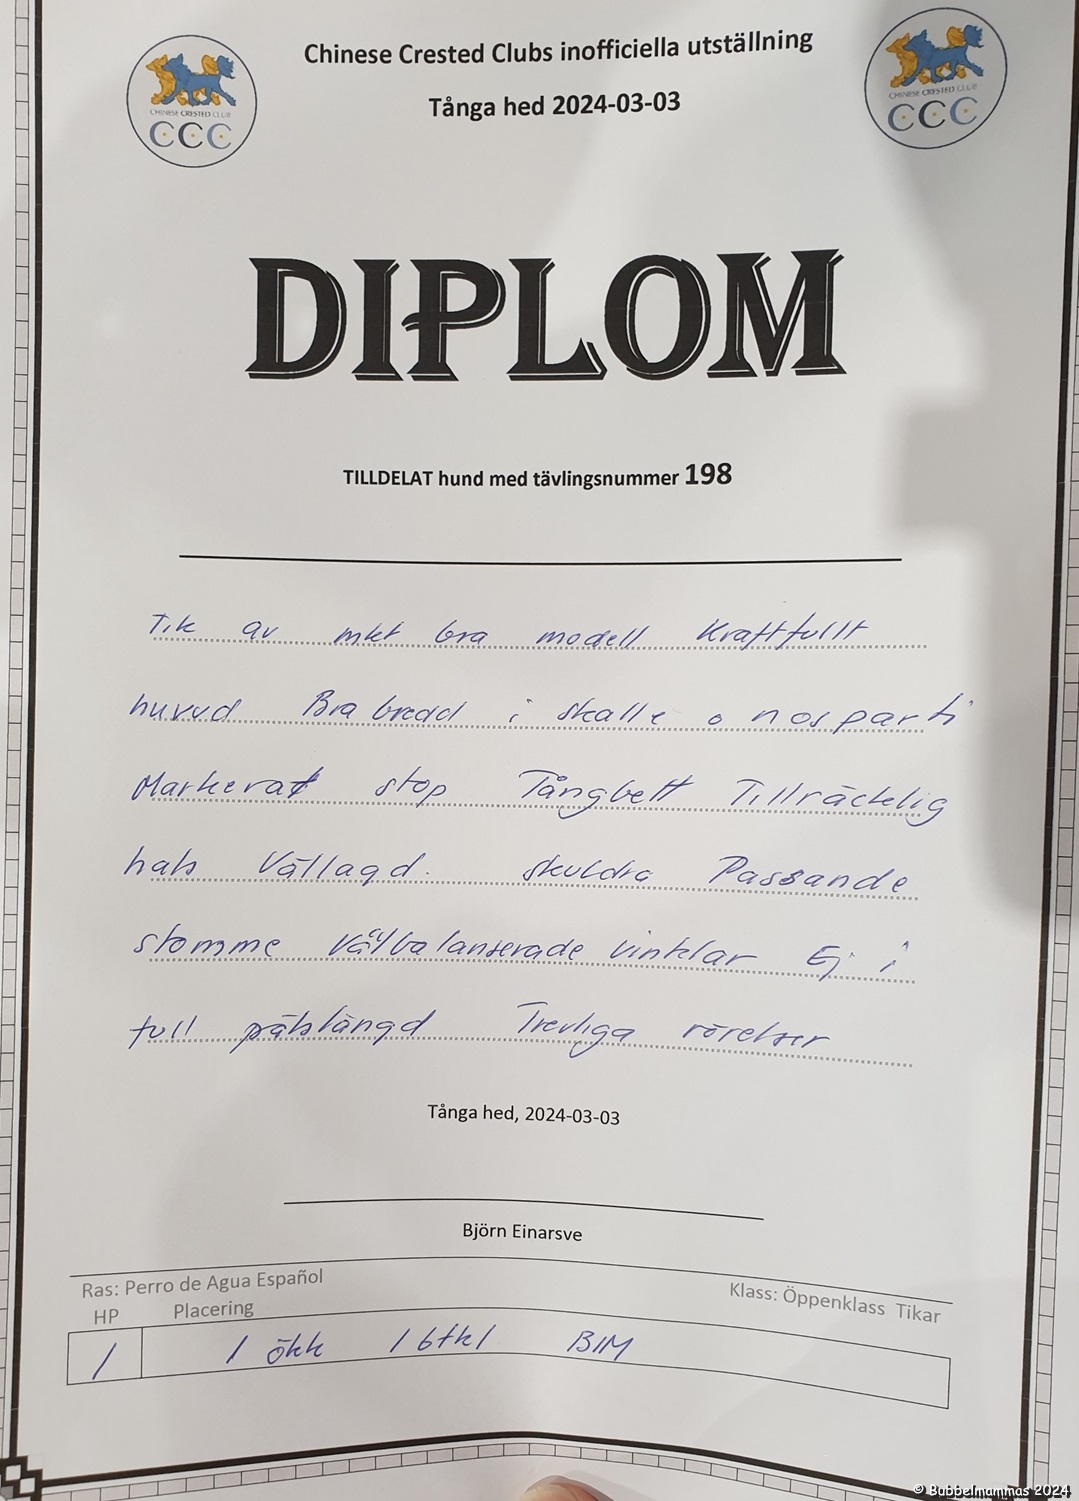 Chinese Crested Clubs inofficiella utställning
Tånga hed 2024-03-03
CHINESE CRESTED CLUB
CCC
CHINESE CRESTED CLUB
CCC
DIPLOM
TILLDELAT hund med tävlingsnummer 198
Tik av mkt bra modell Kraftfullt
huvud Bra bredd i skalle o nosparti
Markerat stop Tångbett Tillräcklig
hals Vällagd. skuldra Passande
stomme Välbalanserade vinklar Ej i
full pälslängd Trevliga rörelser
Tånga hed, 2024-03-03
Björn Einarsve
Ras: Perro de Agua Español
Klass: Öppenklass Tikar
HP Placering
1 1 ökk 1 btkl BIM
© Bubbelmammas 2024